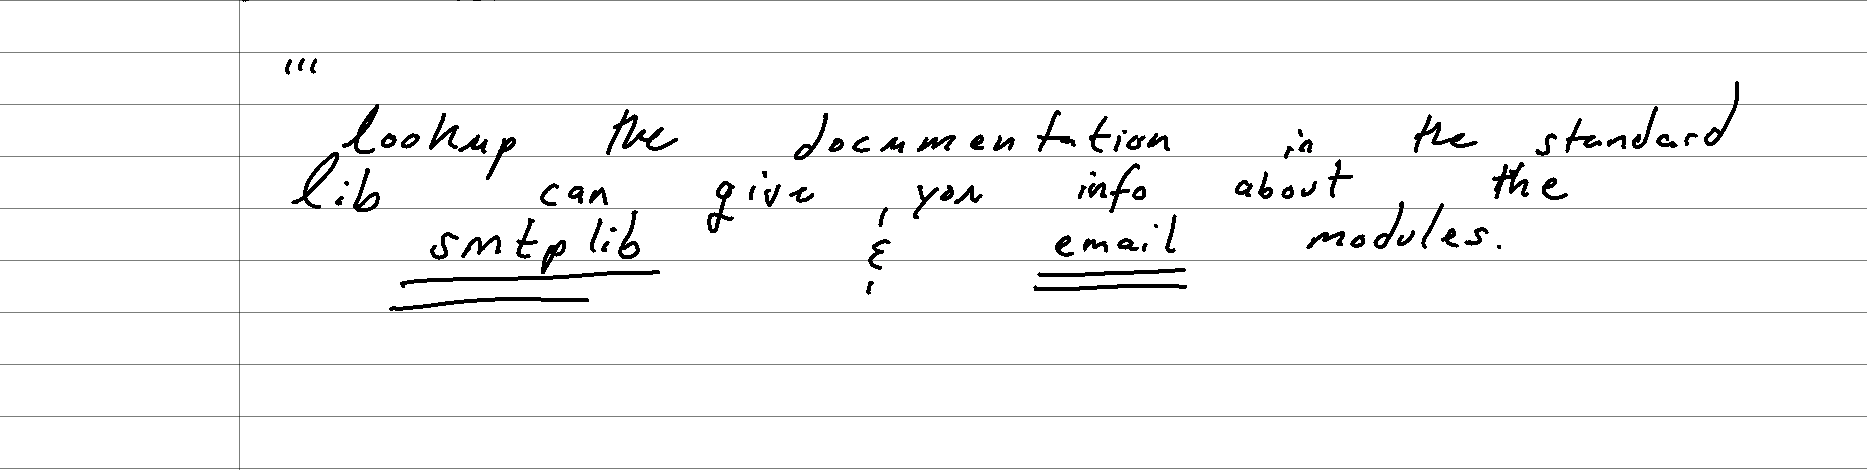 '''
lookup the documentation in the standard
lib can give you info about the
smtplib & email modules.